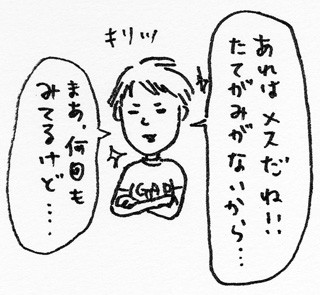 あれは メスだね!!
たてがみがないから…
キリッ
まあ、何回も
みてるけど……
GAP